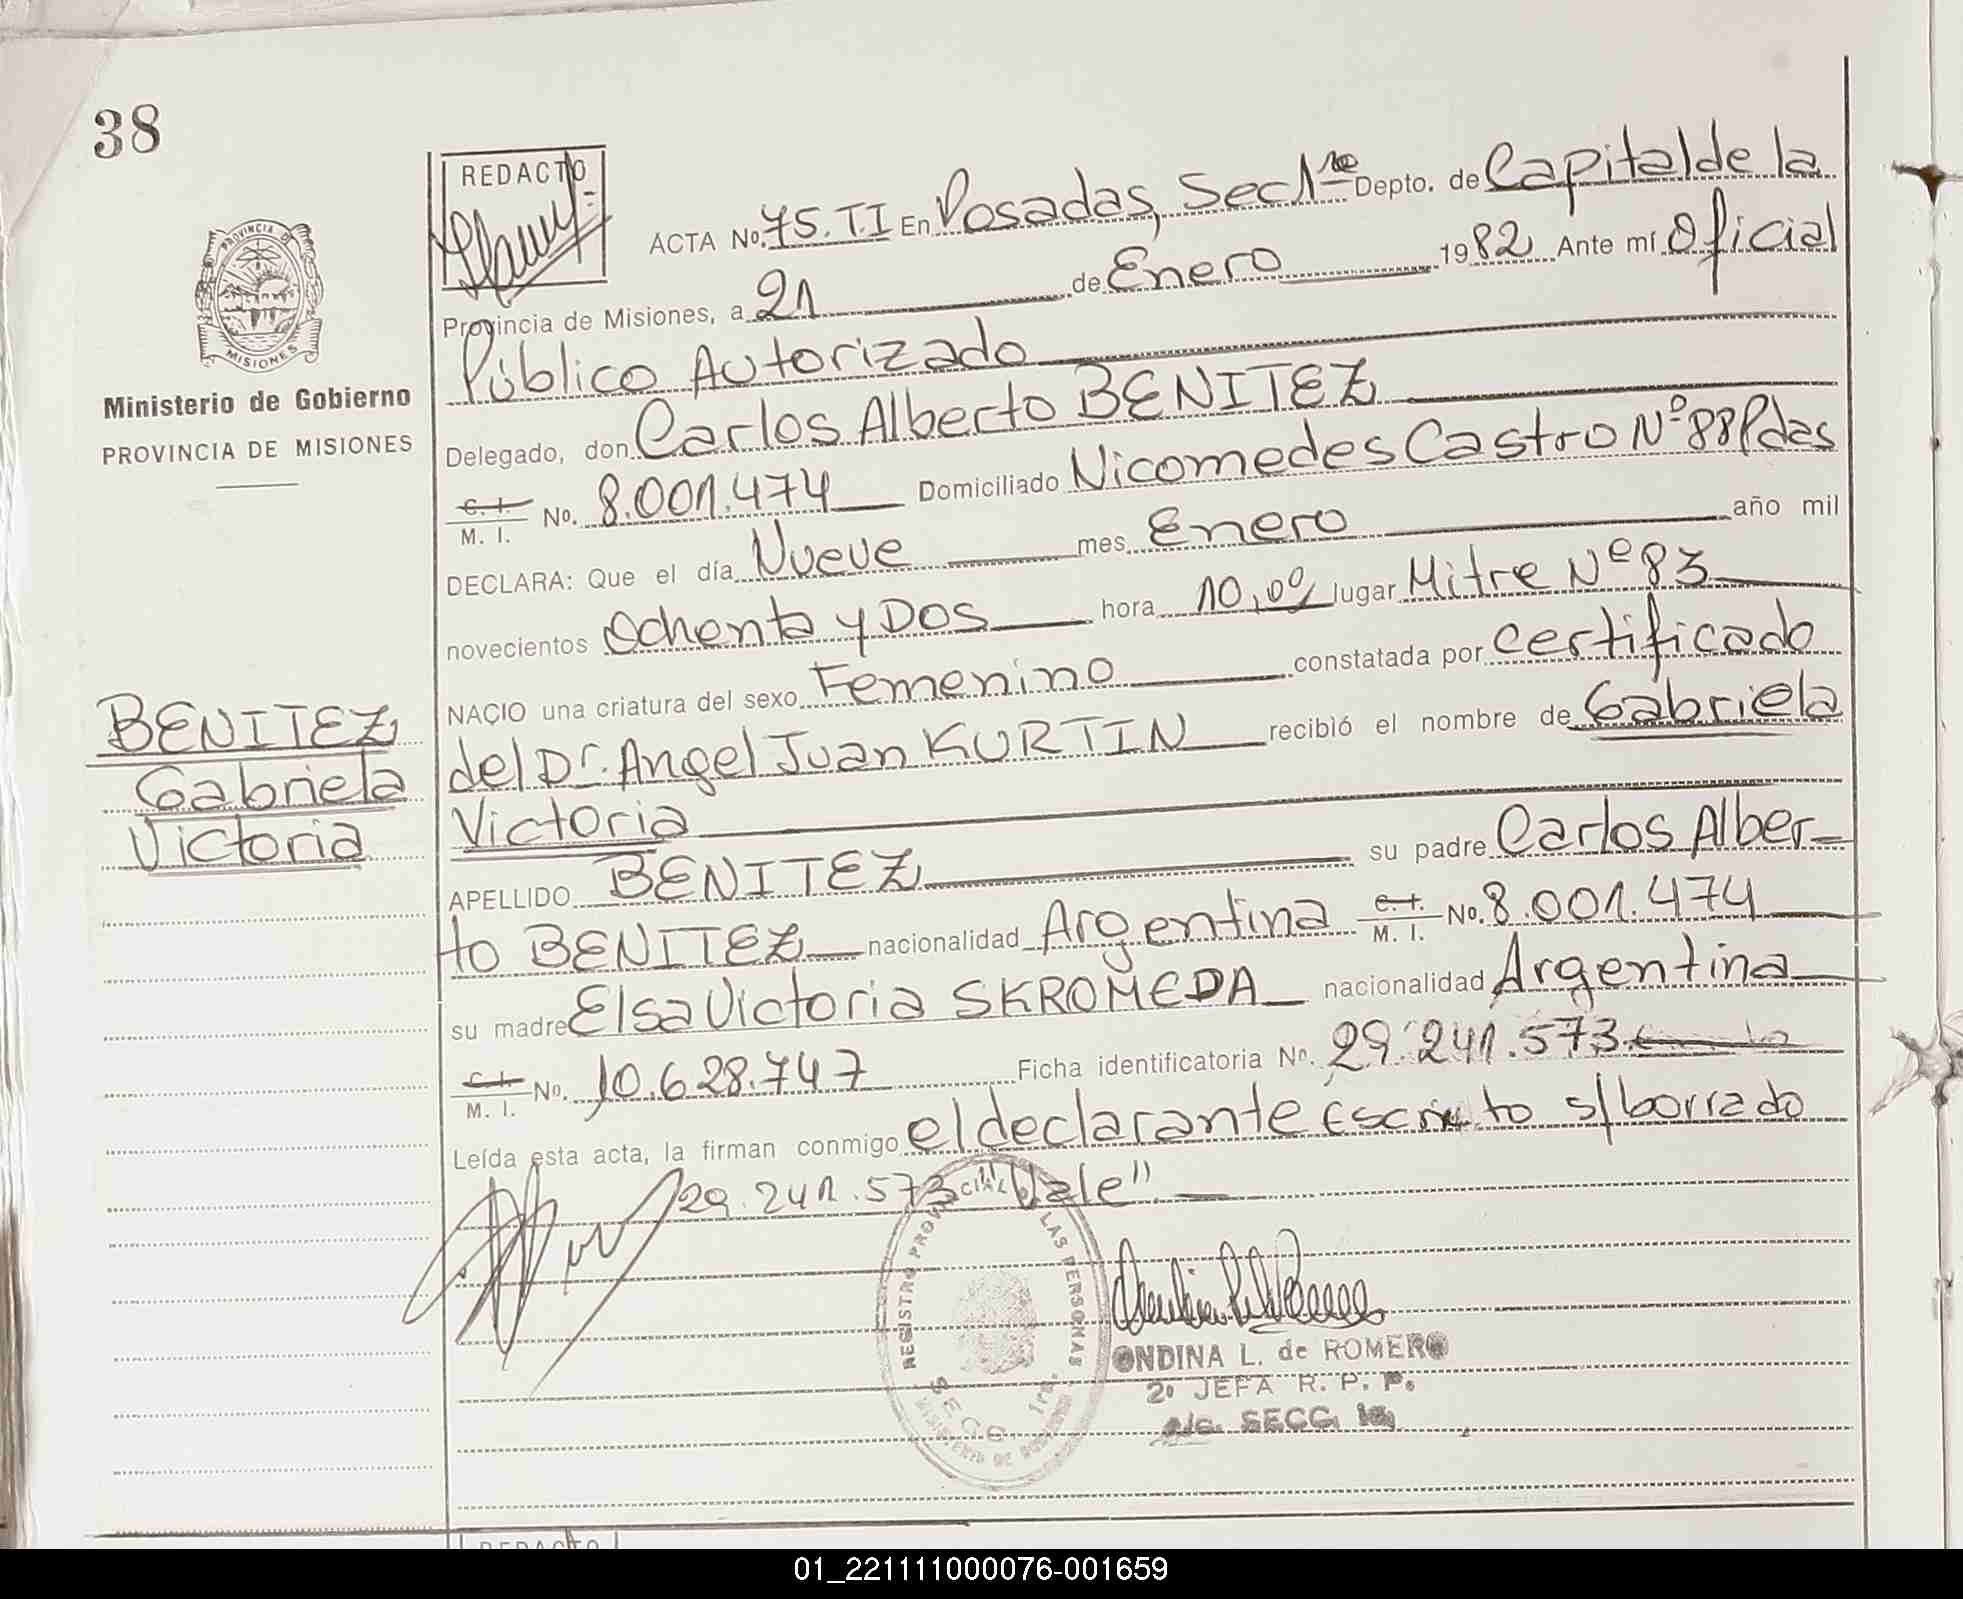 38
REDACTO
ACTA No. 75. T.I En Posadas, Sec 1ra Depto. de Capital de la
Provincia de Misiones, a 21 de Enero 1982 Ante mí Oficial
Público Autorizado
Delegado, don Carlos Alberto BENITEZ
C. I. M. I. No. 8.001.474 Domiciliado Nicomedes Castro Nº 88 Pdas
DECLARA: Que el día Nueve mes Enero año mil
novecientos Ochenta y Dos hora 10,00 lugar Mitre Nº 83
NACIO una criatura del sexo Femenino constatada por certificado
del Dr. Angel Juan KURTIN recibió el nombre de Gabriela
Victoria
APELLIDO BENITEZ su padre Carlos Alber-
to BENITEZ nacionalidad Argentina C. I. M. I. No. 8.001.474
su madre Elsa Victoria SKROMEDA nacionalidad Argentina
C. I. M. I. No. 10.628.747 Ficha identificatoria No. 29.241.573
Leída esta acta, la firman conmigo el declarante Escrito s/borrado
29.241.573 "Vale"
PROVINCIA D
MISIONES
Ministerio de Gobierno
PROVINCIA DE MISIONES
BENITEZ
Gabriela
Victoria
REGISTRO PROVINCIAL LAS PERSONAS
SECC. 1ra.
MINISTERIO DE GOBIERNO
ONDINA L. de ROMERO
2º JEFA R. P. P.
a/c. SECC. 1a.
REDACTO
01_221111000076-001659